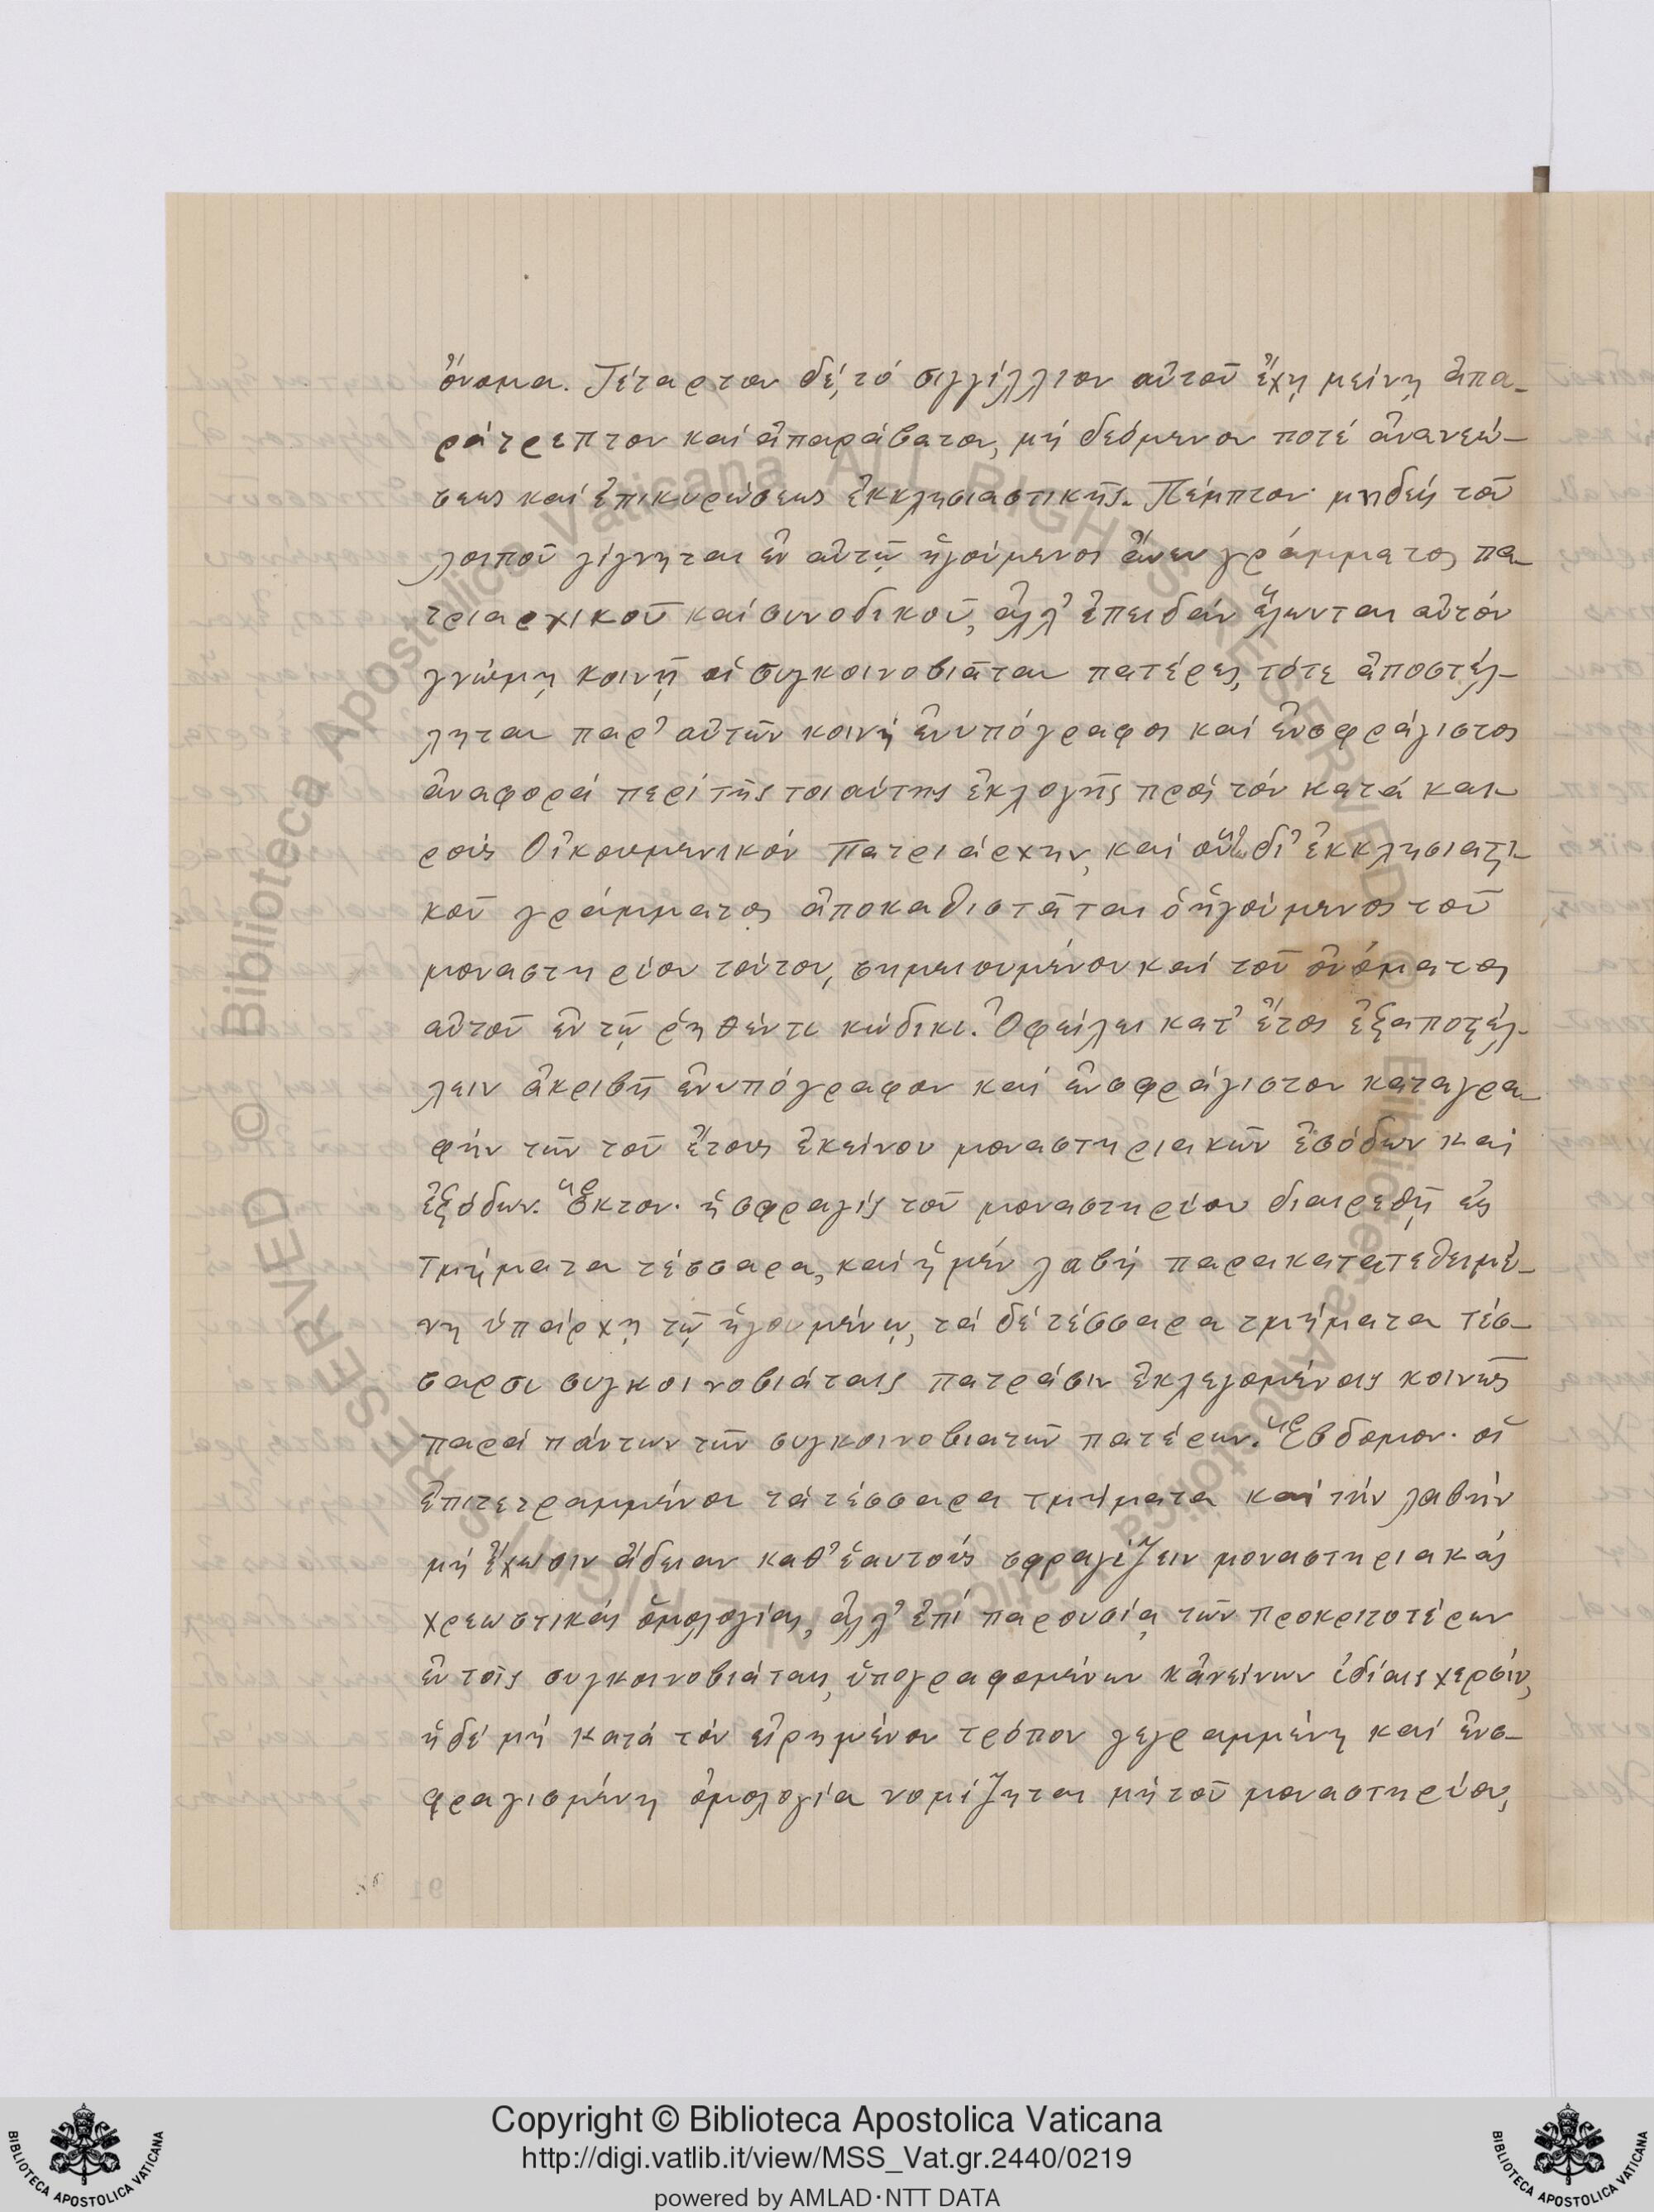 ὄνομα. Τέταρτον δέ, τό σιγγίλλιον αὐτοῦ ἔχῃ μείνῃ ἀπα-
ράτρεπτον καί ἀπαράβατον, μή δεόμενον ποτέ ἀνανεώ-
σεως καί ἐπικυρώσεως ἐκκλησιαστικῆς. Πέμπτον· μηδείς τοῦ
λοιποῦ γίγνηται ἐν αὐτῷ ἡγούμενος ἄνευ γράμματος πα-
τριαρχικοῦ καί συνοδικοῦ, ἀλλ' ἐπειδάν ἕλωνται αὐτόν
γνώμῃ κοινῇ οἱ συγκοινοβιᾶται πατέρες, τότε ἀποστέλ-
ληται παρ' αὐτῶν κοινή ἐνυπόγραφος καί ἐνσφράγιστος
ἀναφορά περί τῆς τοιαύτης ἐκλογῆς πρός τόν κατά και-
ρούς Οἰκουμενικόν Πατριάρχην, καί οὕτω δι' ἐκκλησιαστι-
κοῦ γράμματος ἀποκαθιστᾶται ὁ ἡγούμενος τοῦ
μοναστηρίου τούτου, σημειουμένου καί τοῦ ὀνόματος
αὐτοῦ ἐν τῷ ῥηθέντι κώδικι. Ὀφείλει κατ' ἔτος ἐξαποστέλ-
λειν ἀκριβῆ ἐνυπόγραφον καί ἐνσφράγιστον καταγρα-
φήν τῶν τοῦ ἔτους ἐκείνου μοναστηριακῶν ἐσόδων καί
ἐξόδων. Ἕκτον· ἡ σφραγίς τοῦ μοναστηρίου διαιρεθῇ εἰς
τμήματα τέσσαρα, καί ἡ μέν λαβή παρακατατεθειμέ-
νη ὑπάρχῃ τῷ ἡγουμένῳ, τά δέ τέσσαρα τμήματα τέσ-
σαρσι συγκοινοβιάταις πατράσιν ἐκλεγομένοις κοινῶς
παρά πάντων τῶν συγκοινοβιατῶν πατέρων. Ἕβδομον· οἱ
ἐπιτετραμμένοι τά τέσσαρα τμήματα καί τήν λαβήν
μή ἔχωσιν ἄδειαν καθ' ἑαυτούς σφραγίζειν μοναστηριακάς
χρεωστικάς ὁμολογίας, ἀλλ' ἐπί παρουσίᾳ τῶν προκριτοτέρων
ἐν τοῖς συγκοινοβιάταις, ὑπογραφομένων κἀκείνων ἰδίαις χερσίν,
ἡ δέ μή κατά τόν εἰρημένον τρόπον γεγραμμένη καί ἐνσ-
φραγισμένη ὁμολογία νομίζηται μή τοῦ μοναστηρίου,
Copyright © Biblioteca Apostolica Vaticana
http://digi.vatlib.it/view/MSS_Vat.gr.2440/0219
powered by AMLAD·NTT DATA
BIBLIOTECA APOSTOLICA VATICANA
BIBLIOTECA APOSTOLICA VATICANA